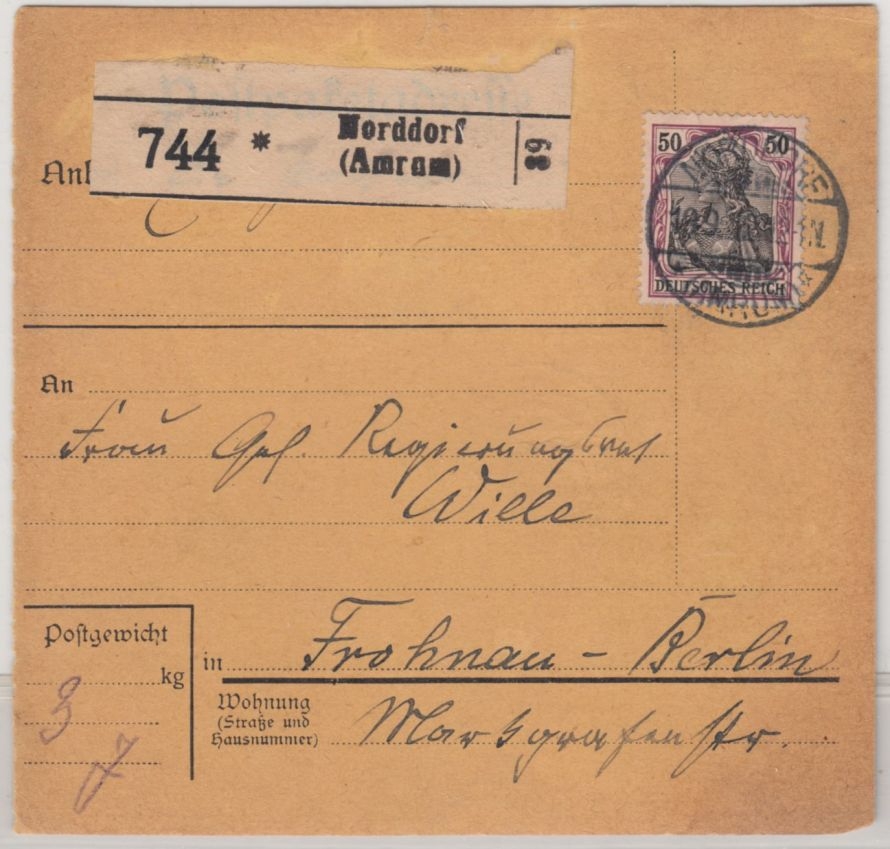 744 * Norddorf
(Amrum)
89
50 50
DEUTSCHES REICH
An
Frau Geh. Regierungsrat
Wille
Postgewicht
kg
3
in Frohnau - Berlin
Wohnung
(Straße und
Hausnummer)
Markgrafenstr.